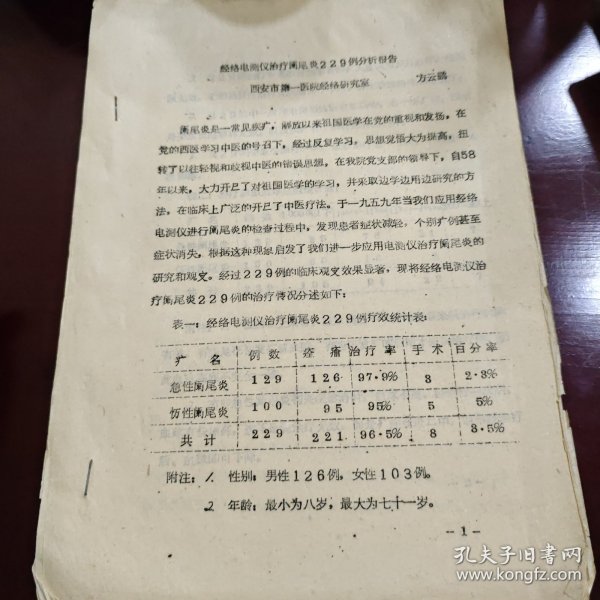 经络电测仪治疗阑尾炎229例分析报告
西安市第一医院经络研究室 方云鹏
阑尾炎是一常见疾疒,解放以来祖国医学在党的重视和发扬,在
党的西医学习中医的号召下,经过反复学习,思想觉悟大为提高,扭
转了以往轻视和歧视中医的错误思想,在我院党支部的领导下,自58
年以来,大力开己了对祖国医学的学习,并采取边学边用边研究的方
法,在临床上广泛的开己了中医疗法。于一九五九年当我们应用经络
电测仪进行阑尾炎的检查过程中,发现患者症状减轻,个别疒例甚至
症状消失,根据这种现象启发了我们进一步应用电测仪治疗阑尾炎的
研究和观察。经过229例的临床观察效果显著,现将经络电测仪治
疗阑尾炎229例的治疗情况分述如下:
表一:经络电测仪治疗阑尾炎229例疗效统计表:
疒 名 例数 痊 癒 治疗率 手术 百分率
急性阑尾炎 129 126 97·9% 3 2·3%
忛性阑尾炎 100 95 95% 5 5%
共 计 229 221 96·5% 8 3·5%
附注:1. 性别:男性126例,女性103例。
2. 年龄:最小为八岁,最大为七十一岁。
-1-
孔夫子旧书网
www.kongfz.com